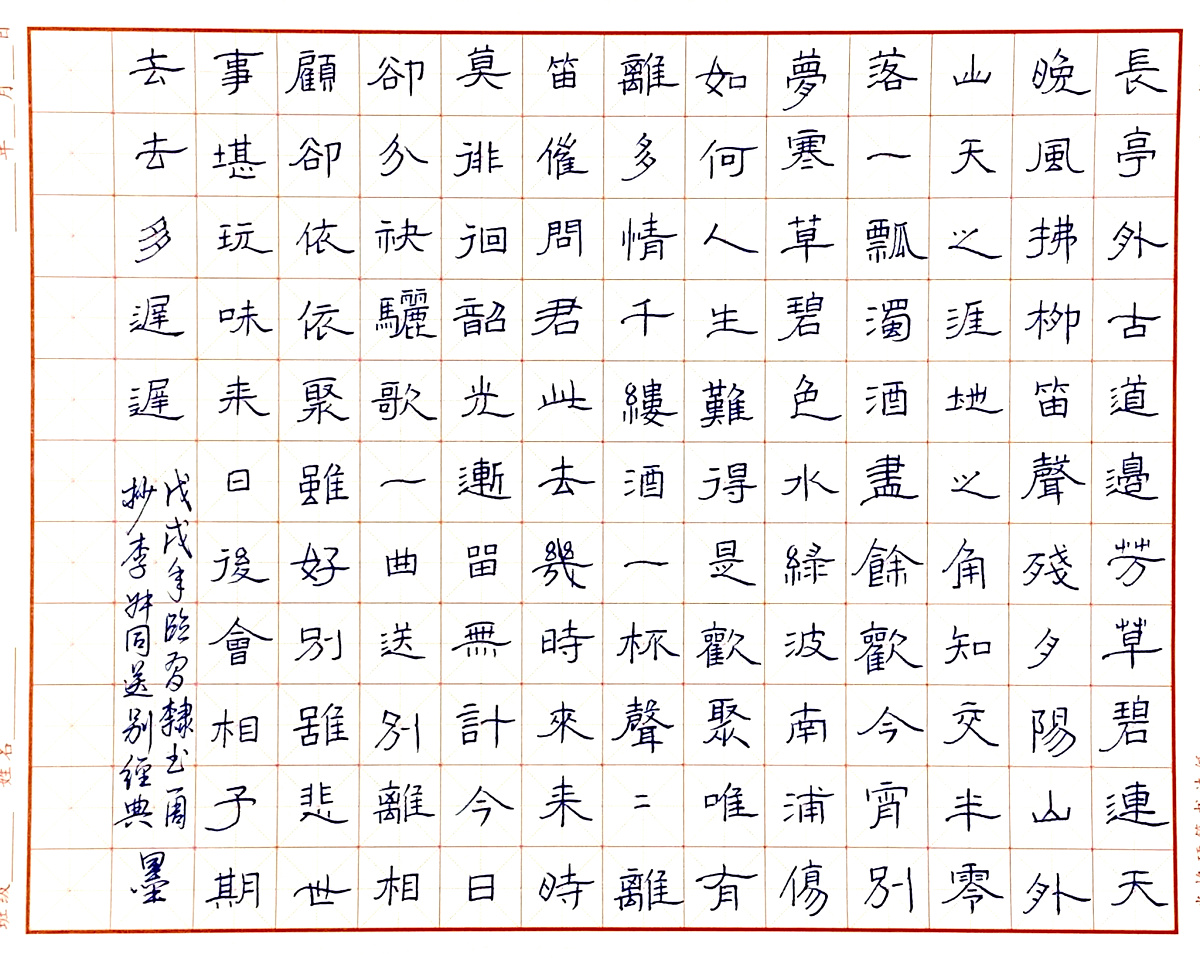 長亭外古道邊芳草碧連天
晚風拂柳笛聲殘夕陽山外
山天之涯地之角知交半零
落一瓢濁酒盡餘歡今宵別
夢寒草碧色水綠波南浦傷
如何人生難得是歡聚唯有
離多情千縷酒一杯聲二離
笛催問君此去幾時來来時
莫徘徊韶光漸留無計今日
卻分袂驪歌一曲送別離相
顧卻依依聚雖好別雖悲世
事堪玩味来日後會相予期
去去多遲遲
戊戌年臨習隸書
抄李叔同送别經典
墨
班级 姓名 年 月 日